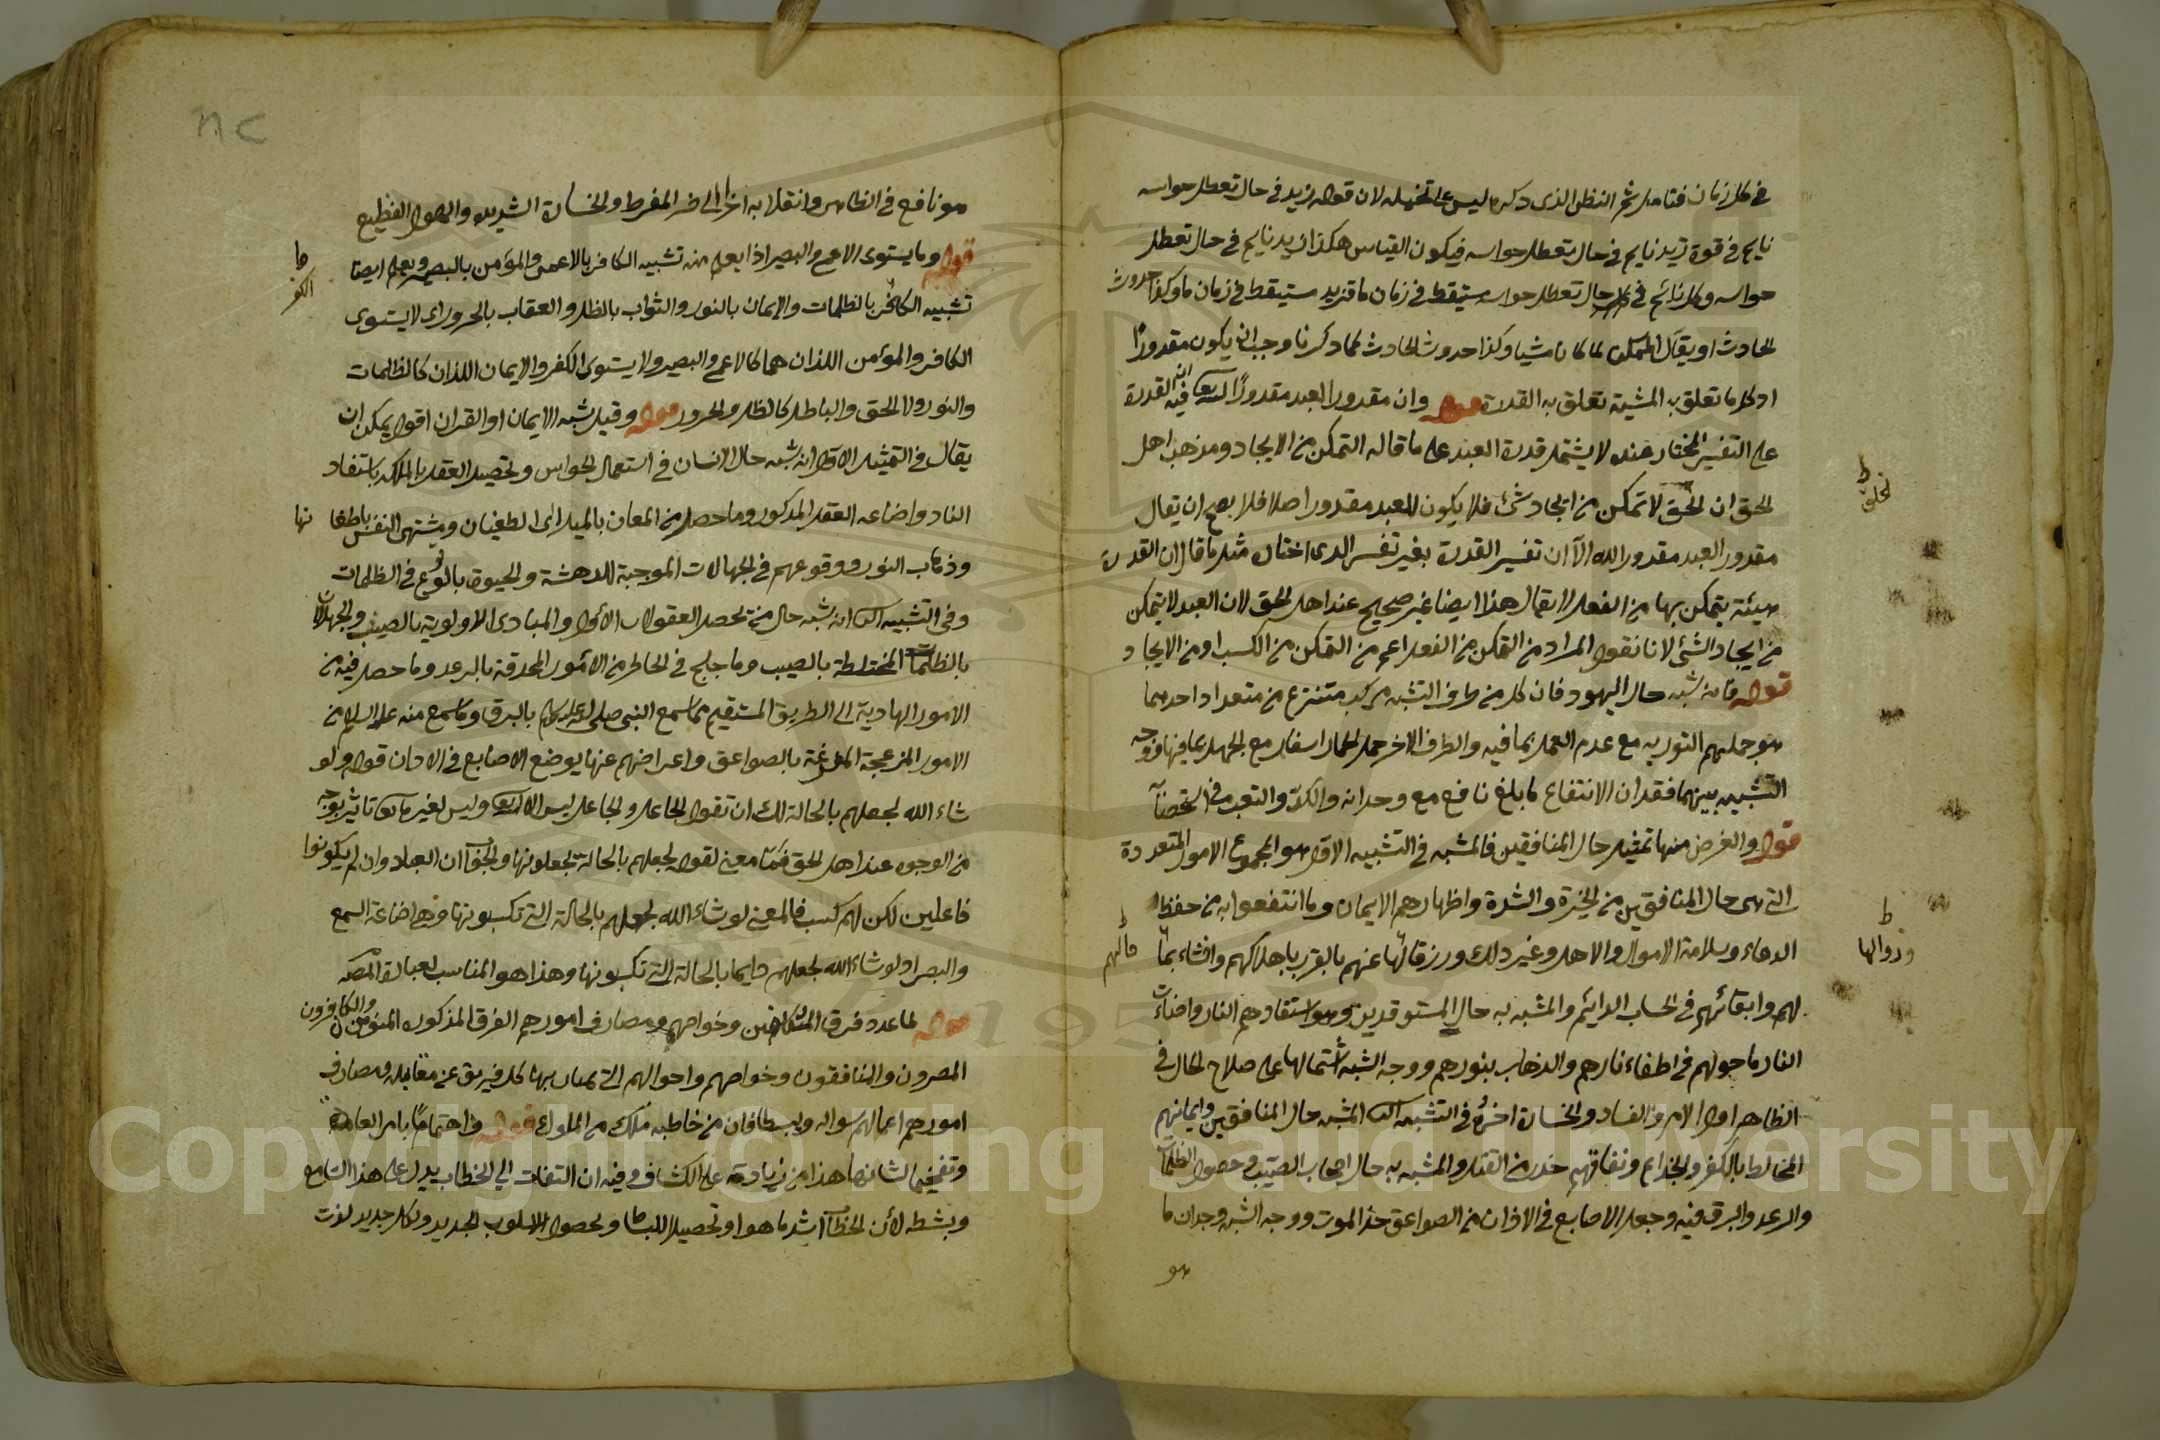 في كل زمان فتامل ثم النظر الذى ذكره ليس على تخيله لان قوله زيد في حال تعطل حواسه
نايم في قوة زيد نايم في حال تعطل حواسه فيكون القياس هكذا زيد نايم في حال تعطل
حواسه وكل نائم في كل حال تعطل حواسه مستيقظ في زمان ما فزيد مستيقظ في زمان ما وكذا حدوث
الحادث او يقال الممكن لما كان مشيا وكذا حدوث الحادث كما ذكرنا وجب ان يكون مقدورا
اذ كل ما تعلق به المشية تعلق به القدرة قوله وان مقدور العبد مقدور الله تعالى فيه ان القدرة
على التفسير المختار عنده لا يشتمل قدرة العبد على ما قاله التمكن من الايجاد ومذهب اهل
الحق ان الخلق لا تمكن من ايجاد شئ فلا يكون للعبد مقدور اصلا فلا يصح ان يقال
مقدور العبد مقدور الله الا ان تفسير القدرة بغير تفسير الذى اختاره مثل ما قال ان القدرة
هيئة يتمكن بها من الفعل لا يقال هذا ايضا غير صحيح عند اهل الحق لان العبد لا يتمكن
من ايجاد الشئ لانا نقول المراد من التمكن من الفعل اعم من التمكن من الكسب او من الايجاد
قوله فانه شبه حال اليهود فان كل من طرفى التشبيه مركب منتزع من متعدد احدهما
هو حملهم التورية مع عدم العمل بما فيه والطرف الاخر حمل الحمار اسفار مع الجهل بما فيها ووجه
التشبيه بينهما فقدان الانتفاع بابلغ نافع مع وجدانه والكد والتعب في استصحابه
قوله والغرض منها تمثيل حال المنافقين فالمشبه في التشبيه الاول هو المجموع الامور المتعددة
التي هى حال المنافقين من الحيرة والشدة واظهارهم الايمان وما انتفعوا به من حفظ
الدماء وسلامة الاموال والاهل وغير ذلك وزوالها عنهم بالقرب باهلاكهم وافشاء مالهم
لهم وابقائهم في الحساب الدايم والمشبه به حال المستوقدين وهو استقادهم النار واضاءت
النار ما حولهم في اطفاء نارهم والذهاب بنورهم ووجه الشبه اشتمالها على صلاح الحال في
الظاهر اول الامر والفساد والخسارة اخره في التشبيه الثانى المشبه حال المنافقين وايمانهم
المخالط بالكفر والخداع ونفاقهم حذر من القتل والمشبه به حال اصحاب الصيب وحصول الظلمات
والرعد والبرق فيه وجعل الاصابع في الاذان من الصواعق حذر الموت ووجه الشبه وجدان ما
هو
الخلق
وزوالها
مالهم
هو نافع في الظاهر وانقلابه اخرا الى ضر المفرط والخسارة الشديد والهول الفظيع
قوله وما يستوى الاعمى والبصير اذا يعلم منه تشبيه الكافر بالاعمى والمؤمن بالبصير ويعلم ايضا
تشبيه الكفر بالظلمات والايمان بالنور والثواب بالظل والعقاب بالحرور اى لا يستوى
الكافر والمؤمن اللذان هما كالاعمى والبصير ولا يستوى الكفر والايمان اللذان كالظلمات
والنور ولا الحق والباطل كالظل والحرور قوله وقيل شبه الايمان او القران اقول يمكن ان
يقال في التمثيل الاول انه شبه حال الانسان في استعمال الحواس وتحصيل العقل بالملكة باستقاد
النار واضاعه العقل المذكور وما حصل من المعان بالميل الى الطغيان ويشتهى النفس باطفائها
وذهاب النور ووقوعهم في الجهالات الموجبة للدهشة والحيرة بالوقوع في الظلمات
وفي التشبيه الثانى انه شبه حال من تحصل العقولات الاول والمبادى الاولوية بالصيب والجهلات
بالظلمات المختلطة بالصيب وما جلج في الخاطر من الامور المحدقة بالرعد وما حصل فيه من
الامور الهادية الى الطريق المستقيم مما سمع النبى صلى الله عليه وسلم بالبرق وما سمع منه عليه السلام من
الامور المزعجة بالصواعق واعراضهم عنها بوضع الاصابع في الاذان قوله ولو
شاء الله لجعلهم بالحالة لك ان تقول الجاعل والجاعل ليس الا الله تعالى وليس لغيره تعالى تاثير بوجه
من الوجوه عند اهل الحق فما معنى لقوله لجعلهم بالحالة يجعلونها والجواب ان العباد وان لم يكونوا
فاعلين لكن لهم كسب فالمعنى لو شاء الله لجعلهم بالحالة التى تكسبونها وهى اضاعة السمع
والبصر او لو شاء الله لجعلهم دايما بالحالة التى تكسبونها وهذا هو المناسب لعبارة المص
قوله لما عدد فرق المكلفين وخواصهم ومصارف امورهم الفرق المذكورة المؤمنون والكافرون
المصرون والمنافقون وخواصهم واحوالهم التى يمتاز بها كل فريق عن مقابله ومصارف
امورهم اعمالهم سواله وبسط فان من خاطبه ملك من الملوك قوله واهتماما بامر العبادة
وتفخيما لشانها هذا من زيادة على الكشاف وفيه ان التفات الى الخطاب يدل على هذا السامع
وبشطه لان الخطاب اشد ما هو او تحصيل اللباط ولحصول الاسلوب الجديد ولكل جديد لذت
الكفر
نها